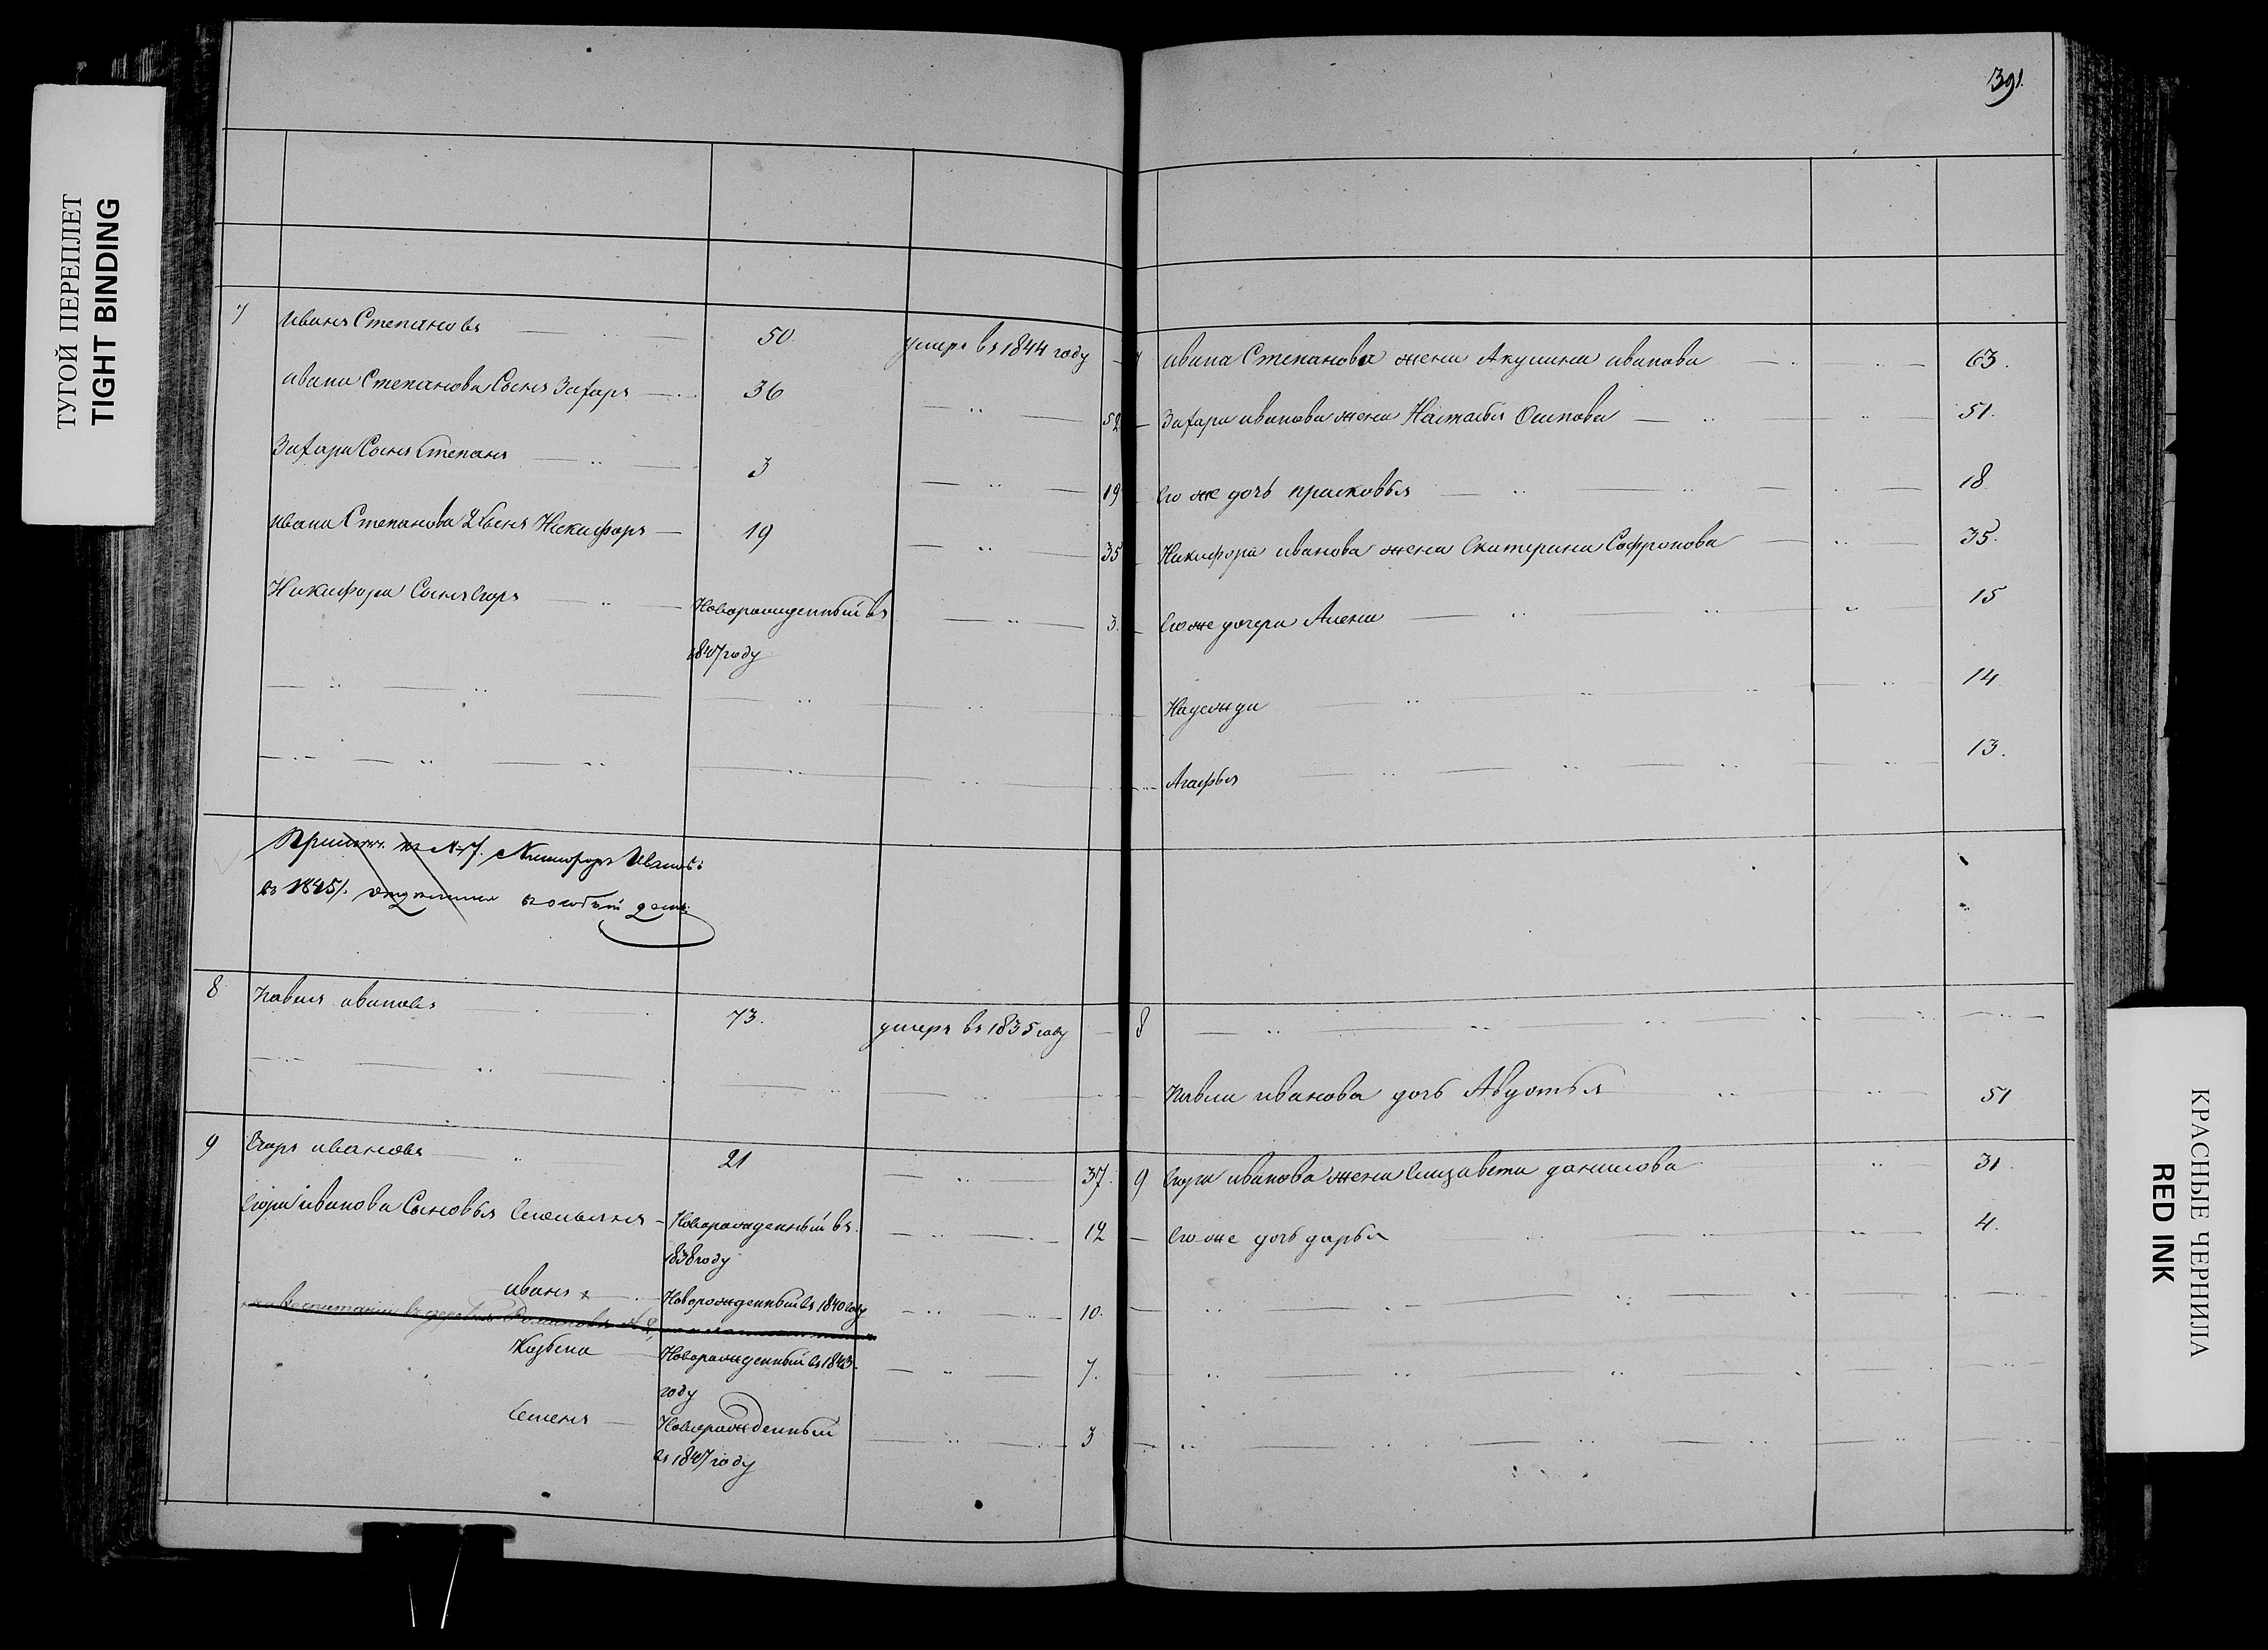 ТУГОЙ ПЕРЕПЛЕТ
TIGHT BINDING
7 Иванъ Степановъ 50 умеръ въ 1844 году
Ивана Степанова Сынъ Захаръ 36 52
Захара Сынъ Степанъ 3 19
Ивана Степанова 2 Сынъ Никифоръ 19 35
Никифора Сынъ Егоръ Новорожденный въ 3.
1847 году
къ № 7. Никифоръ Иванов
въ 1845 г.
8 Павелъ Ивановъ 73. умеръ въ 1835 году
9 Егоръ Ивановъ 21 37.
Егора Иванова Сыновья Емельянъ Новорожденный въ 12
1838 году
Иванъ Новорожденный въ 1840 году 10.
Козьма Новорожденный въ 1843 7.
году
Семенъ Новорожденный 3
въ 1847 году
391.
7 Ивана Степанова жена Акулина Иванова 63.
Захара Иванова жена Настасья Осипова 51.
Его же дочь Прасковья 18
Никифора Иванова жена Екатерина Софронова 35.
Его же дочери Алена 15
Надежда 14
Агафья 13.
8
Павла Иванова дочь Авдотья 51
9 Егора Иванова жена Елизавета Данилова 31.
Его же дочь Дарья 4.
КРАСНЫЕ ЧЕРНИЛА
RED INK